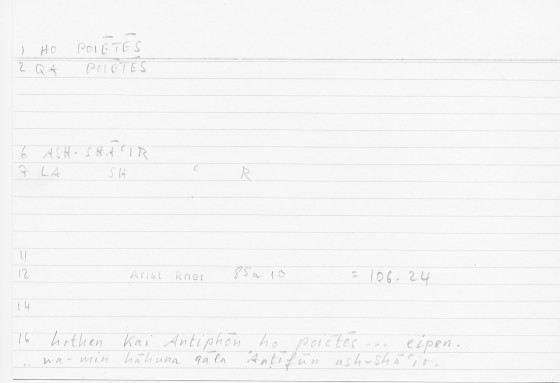 1 HO POIĒTĒS
2 QA POIĒTĒS
6 ASH-SHĀʿIR
7 LA SH ʿ R
11
12 Arist Rhet 85a10 = 106.24
14
16 hothen kai Antiphōn ho poiētēs ... eipen.
.. wa-min hāhuna qāla Antīfūn ash-shāʿir.